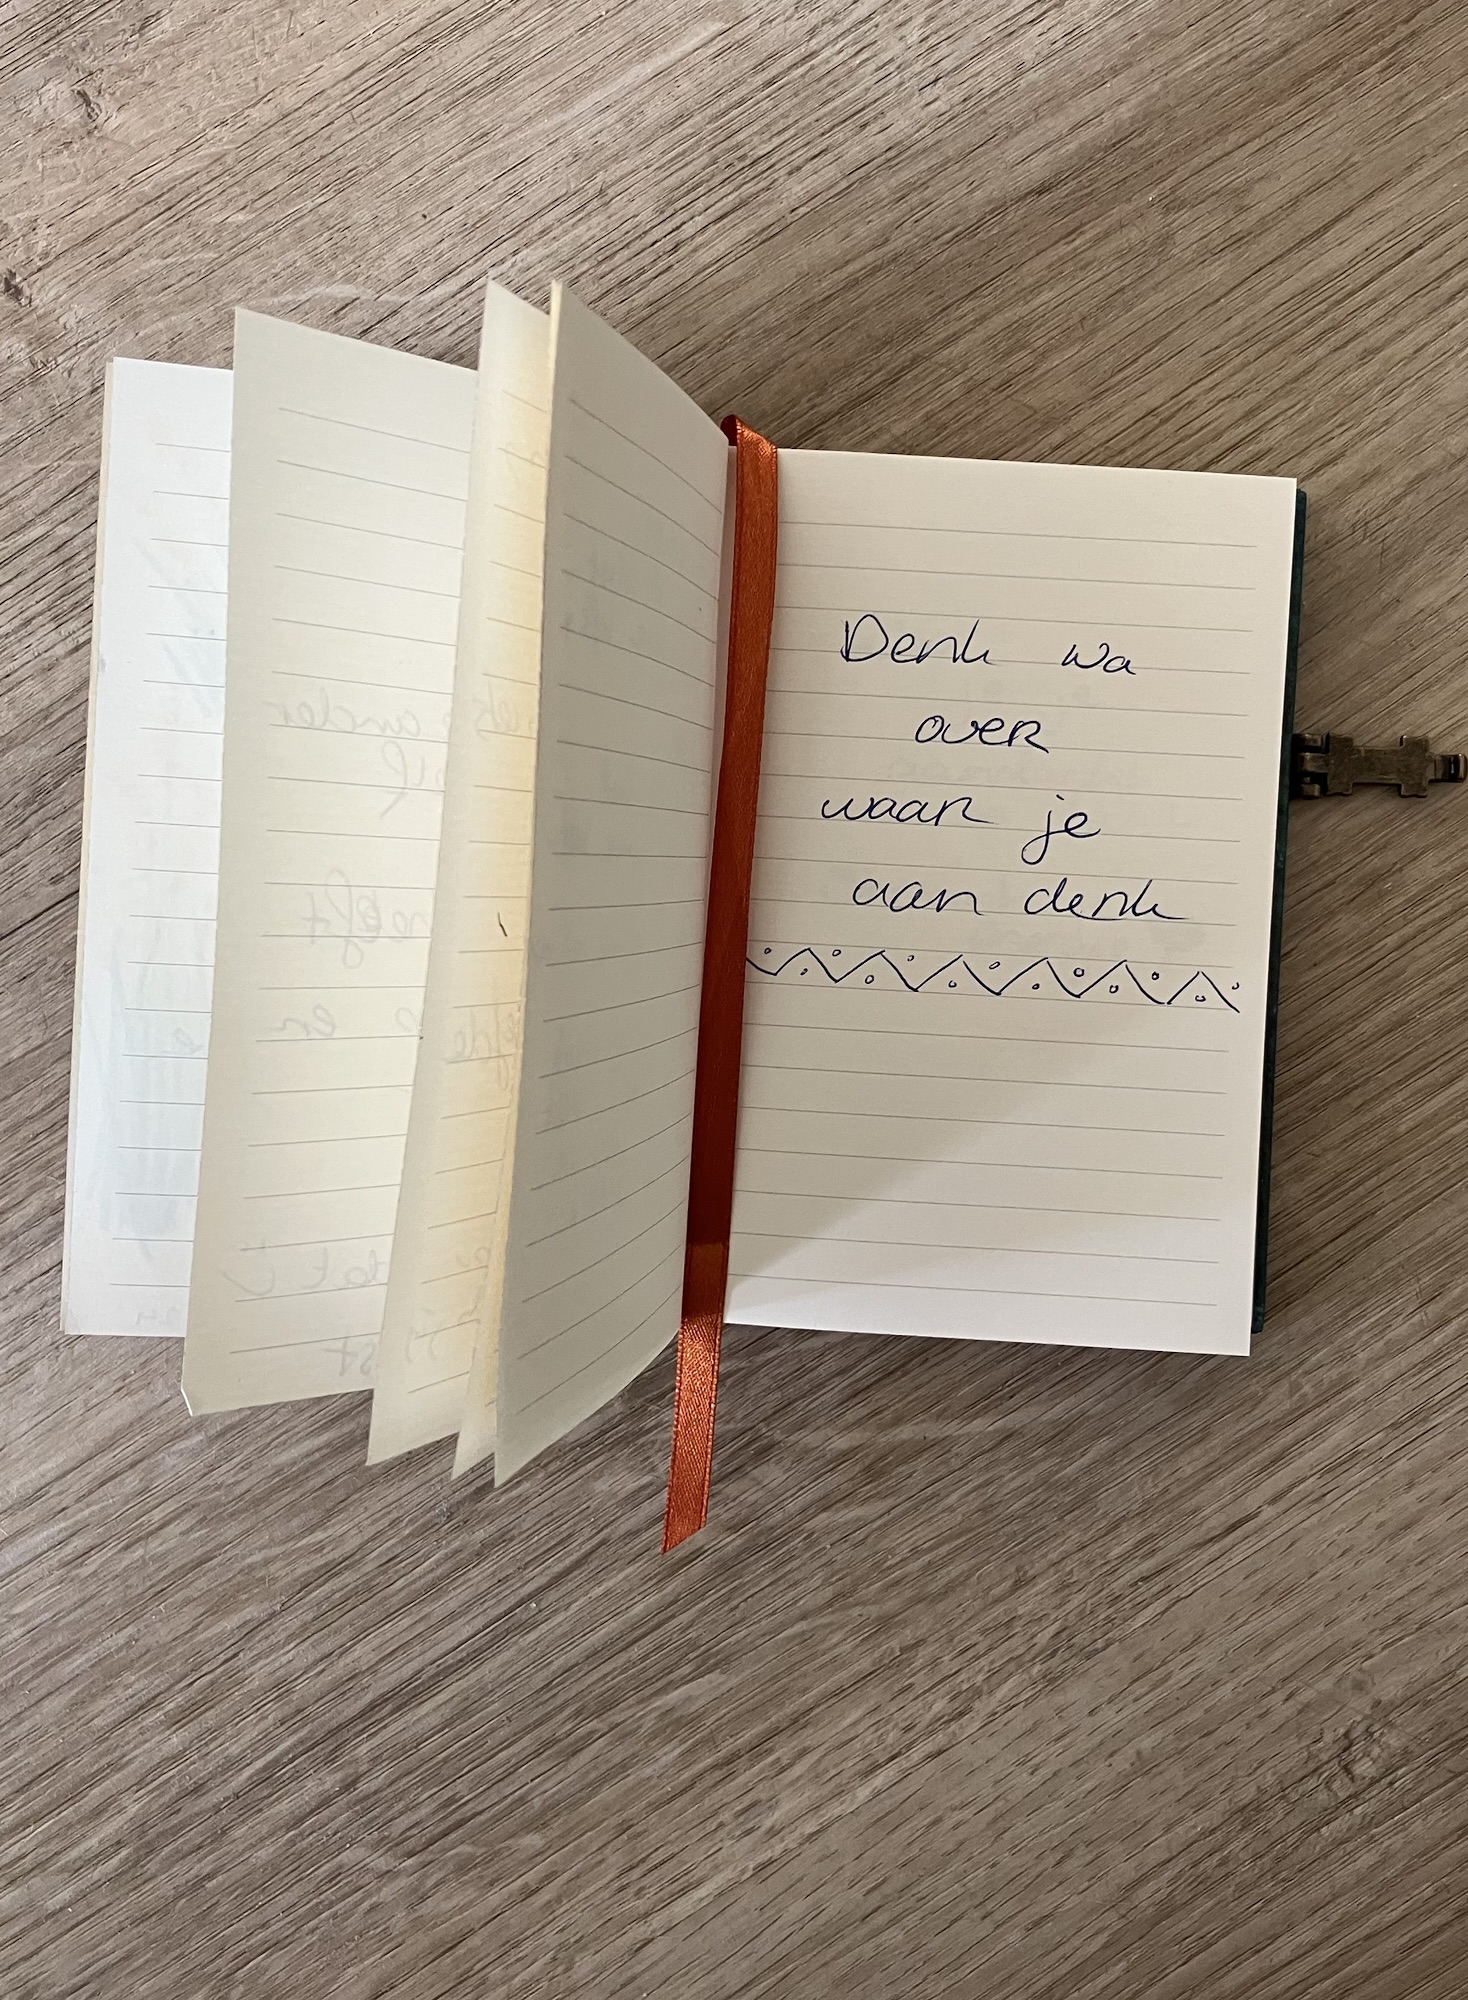 Denk wa
over
waar je
aan denk